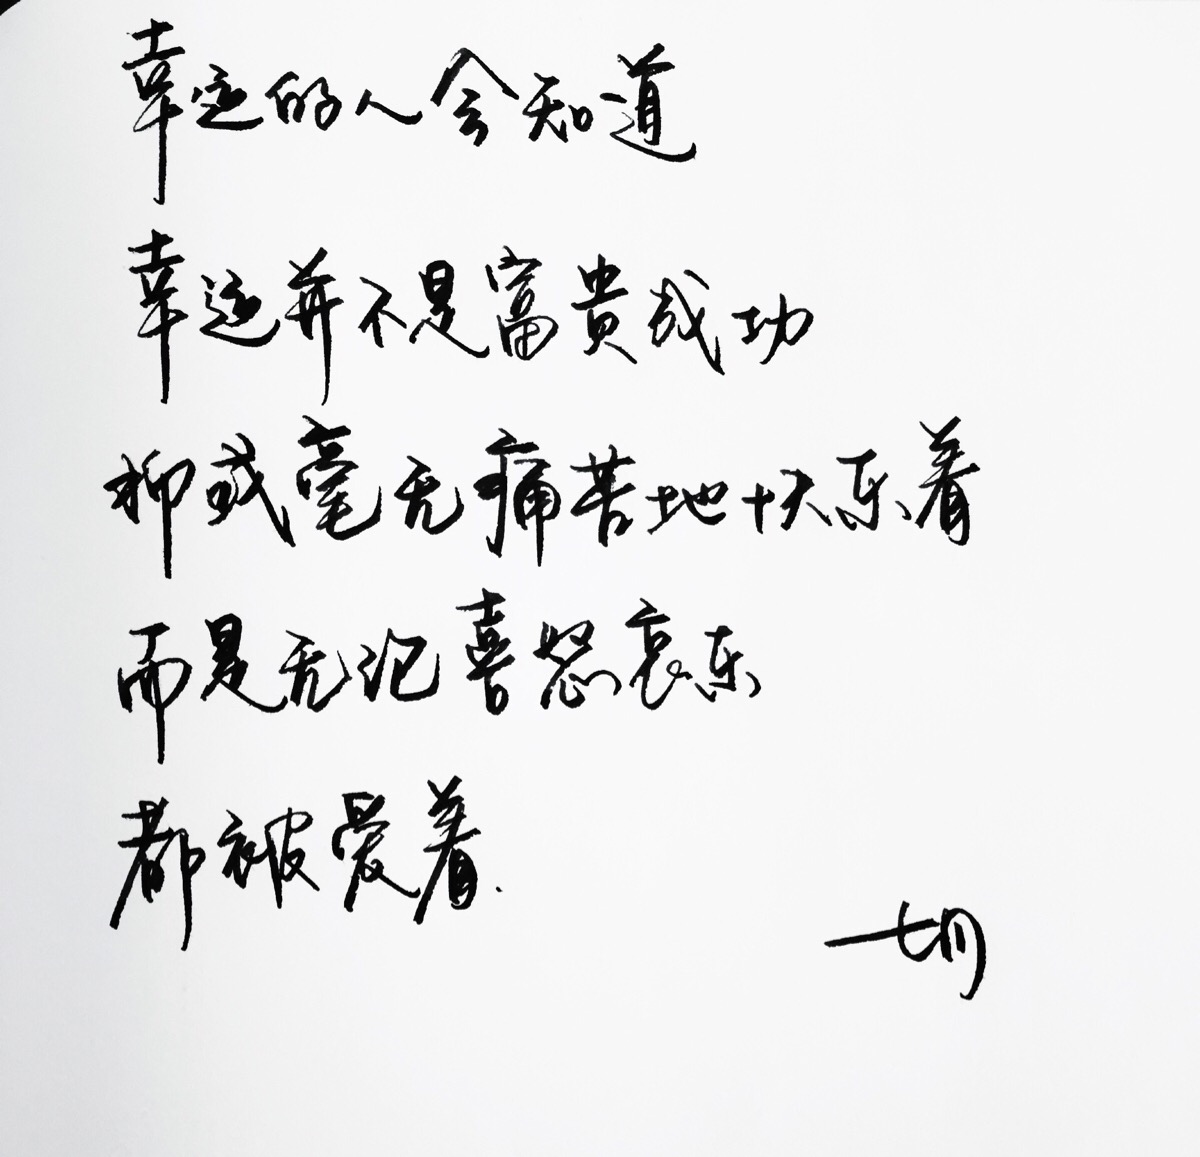 幸运的人会知道
幸运并不是富贵成功
抑或毫无痛苦地快乐着
而是无论喜怒哀乐
都被爱着.